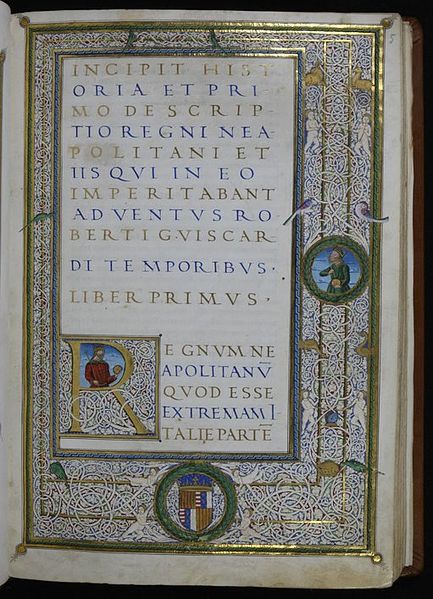 INCIPIT HIST
ORIA ET PRI
MO DESCRIP
TIO REGNI NEA
POLITANI ET
IIS QVI IN EO
IMPERITABANT
ADVENTVS RO
BERTI GVISCAR
DI TEMPORIBVS.
LIBER PRIMVS.
REGNVM NE
APOLITANV̅
QVOD ESSE
EXTREMAM I
TALIE PARTE̅
5